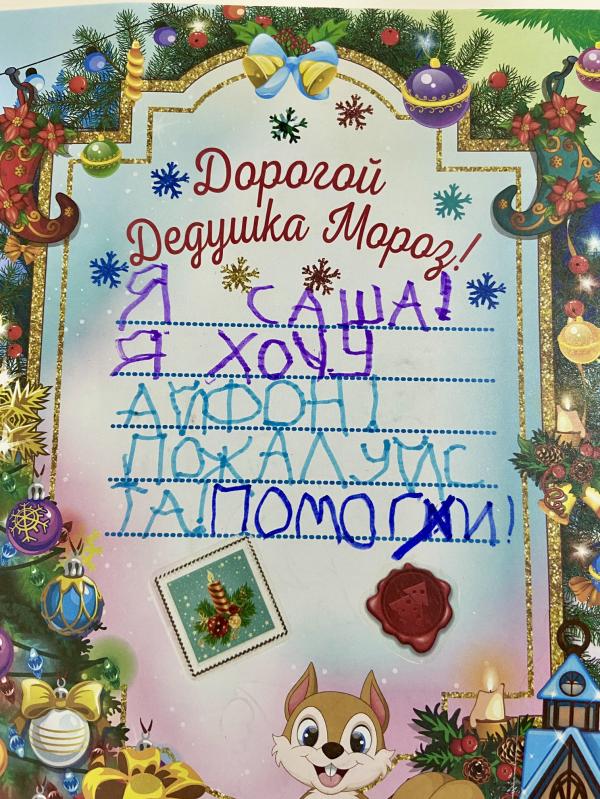 Дорогой
Дедушка Мороз!
Я САША!
Я ХОЧУ
АЙФОН!
ПОЖАЛУЙС
ТА! ПОМОГИ!